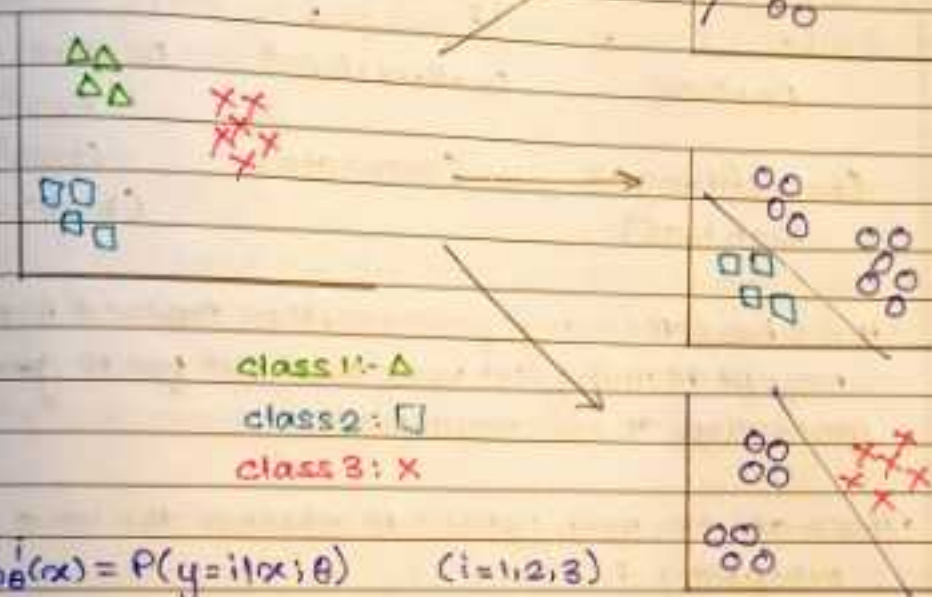 class 1:- △
class 2: □
class 3: ×
θ^i(x) = P(y=i|x; θ) (i=1,2,3)